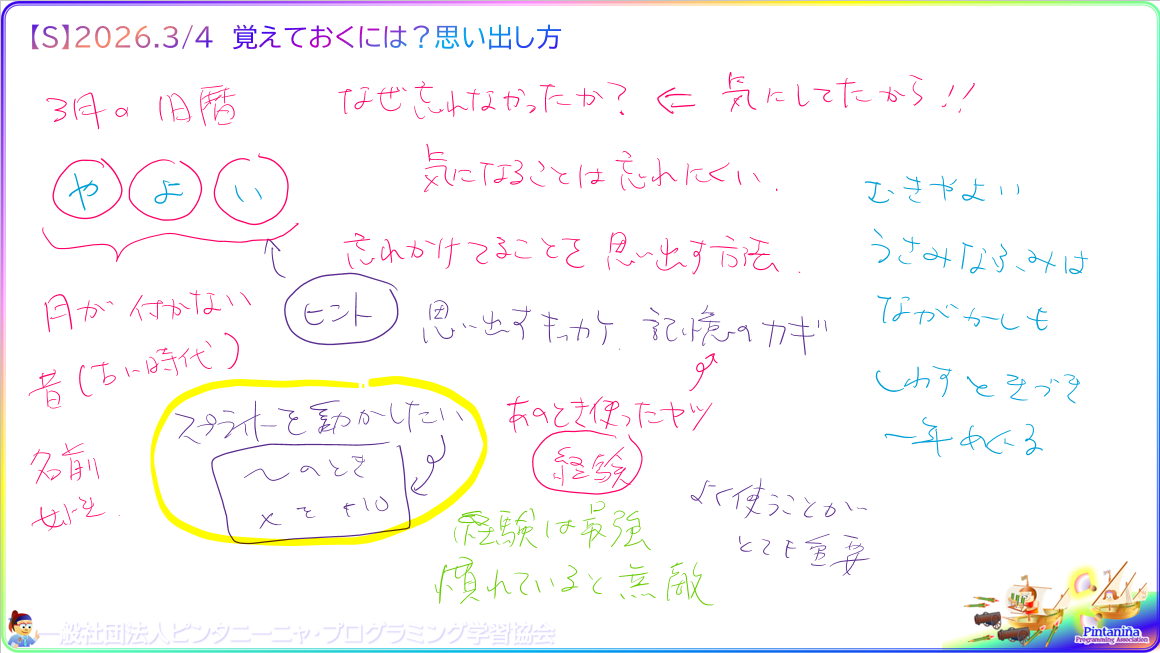 【S】2026.3/4 覚えておくには？思い出し方
3月の旧暦
やよい
月が付かない
昔(古い時代)
名前
なぜ忘れなかったか？ ← 気にしてたから!!
気になることは忘れにくい.
忘れかけてることを思い出す方法.
ヒント
思い出すキッカケ. 記憶のカギ
あのとき使ったヤツ
経験
スプライトを動かしたい
〜のとき
xを+10
経験は最強
慣れていると無敵
よく使うことが
とても重要
むきやよい
うさみなふみは
ながかーしも
しわすときづき
一年めぐる
一般社団法人ピンタニーニャ・プログラミング学習協会
Pintaniña
Programming Association